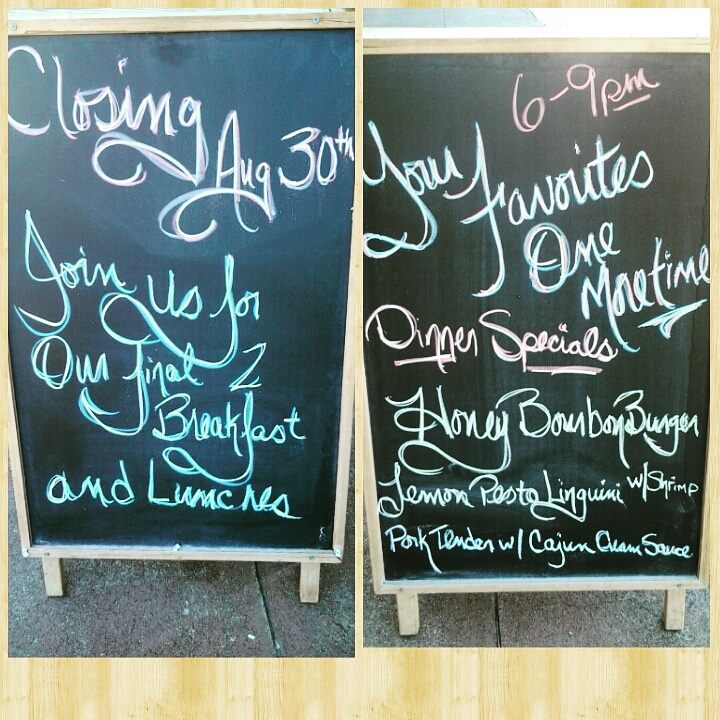 Closing
Aug 30th
Join us for
Our final 2
Breakfast
and Lunches
6-9pm
Your
Favorites
One
More time
Dinner Specials
Honey Bourbon Burger
Lemon Pesto Linguini w/ Shrimp
Pork Tender w/ Cajun Cream Sauce